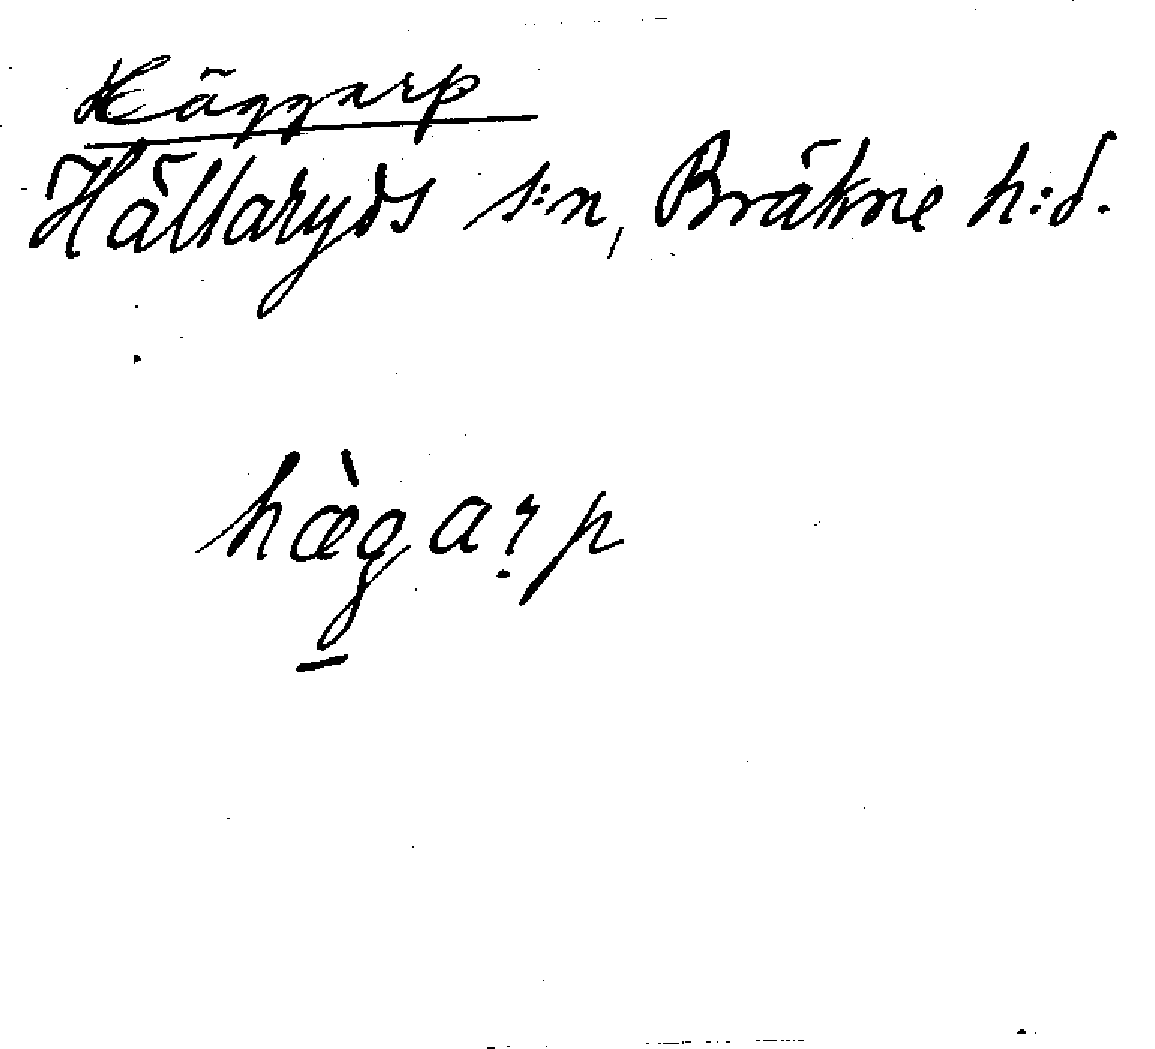 Häggarp
Hällaryds s:n, Bräkne h:d.
hæ̀g̲aṛp